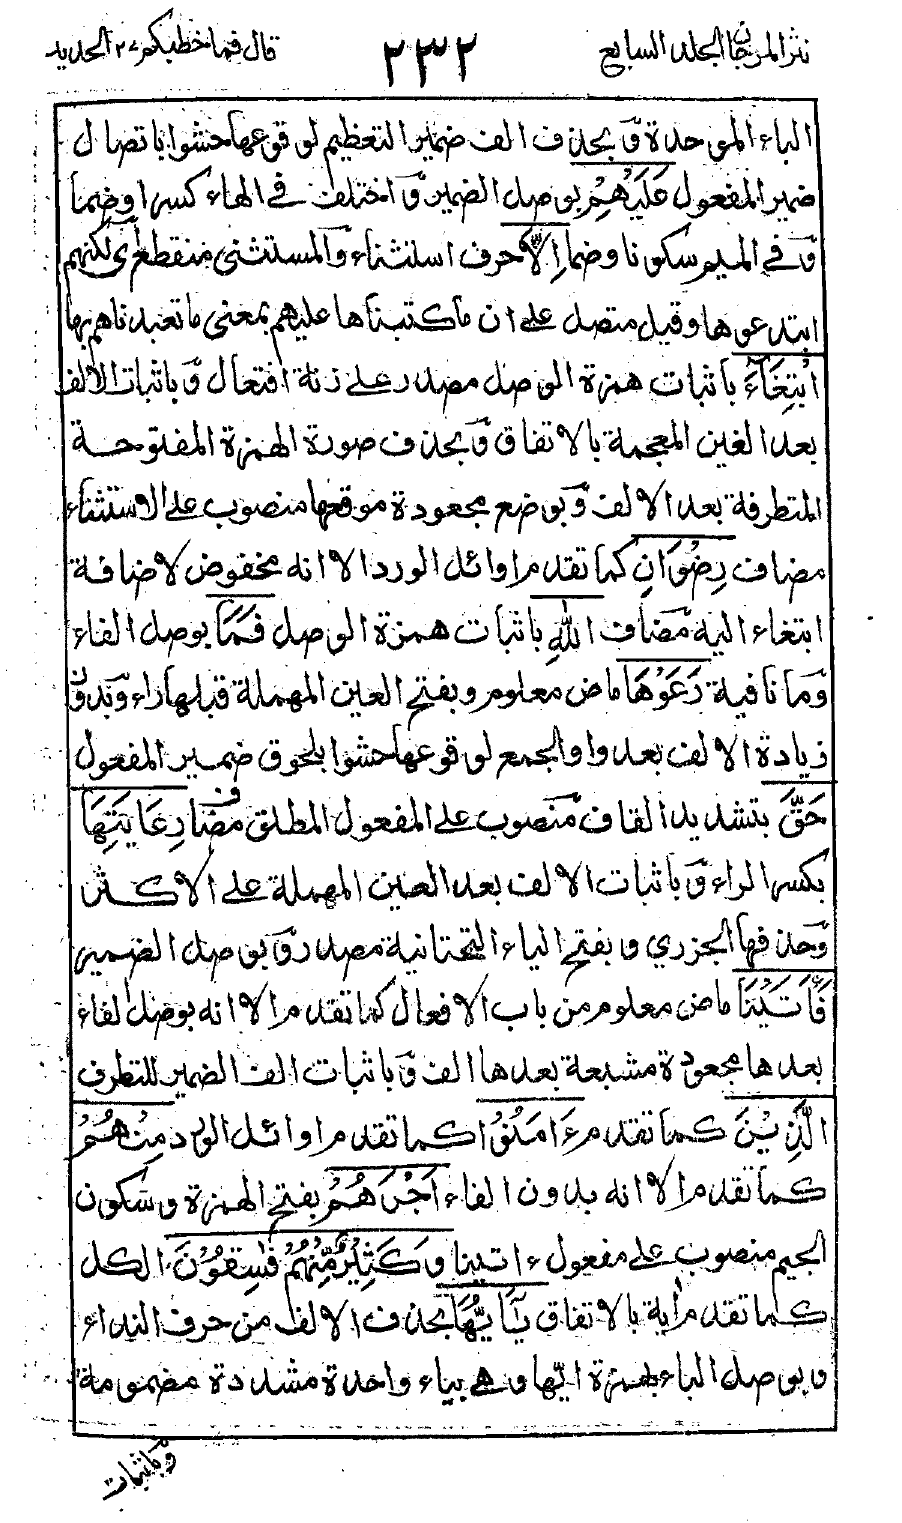 نثر المرجان الجلد السابع
٢٣٢
قال فما خطبكم ٢٧ الحديد
الباء الموحدة وبحذف الف ضمير التعظيم لوقوعها حشوا باتصال
ضمير المفعول عَلَيْهِمْ بوصل الضمير واختلف في الهاء كسرا وضما
وفي الميم سكونا وضما اِلَّا حرف استثناء والمستثنى منقطع اى لكنهم
ابتدعوها وقيل متصل على ان ما كتبناها عليهم بمعنى ما تعبدناهم بها
ابْتِغَآءَ باثبات همزة الوصل مصدر على زنة افتعال وباثبات الالف
بعد الغين المعجمة بالاتفاق وبحذف صورة الهمزة المفتوحة
المتطرفة بعد الالف وبوضع مجعودة موقعها منصوب على الاستثناء
مضاف رِضْوَانِ كما تقدم اوائل الورد الا انه مخفوض لاضافة
ابتغاء اليه مضاف اللهِ باثبات همزة الوصل فَمَا بوصل الفاء
وما نافية رَعَوْهَا ماض معلوم وبفتح العين المهملة قبلها راء وبدون
زيادة الالف بعد واو الجمع لوقوعها حشوا بلحوق ضمير المفعول
حَقَّ بتشديد القاف منصوب على المفعول المطلق مضاف رِعَايَتِهَا
بكسر الراء وباثبات الالف بعد العين المهملة على الاكثر
وحذفها الجزري وبفتح الياء التحتانية مصدر وبوصل الضمير
فَاٰتَيْنَا ماض معلوم من باب الافعال كما تقدم الا انه بوصل الفاء
بعدها مجعودة مشبعة بعدها الف وباثبات الف الضمير للتطرف
الَّذِيْنَ كما تقدم ءَامَنُوْا كما تقدم اوائل الورد مِنْهُمْ
كما تقدم الا انه بدون الفاء اَجْرَهُمْ بفتح الهمزة وسكون
الجيم منصوب على مفعول ءاتينا وَكَثِيْرٌ مِّنْهُمْ فٰسِقُوْنَ الكل
كما تقدم اٰية بالاتفاق يٰٓاَيُّهَا بحذف الالف من حرف النداء
وبوصل الياء بهمزة ايها وهي بياء واحدة مشددة مضمومة
وباثبات